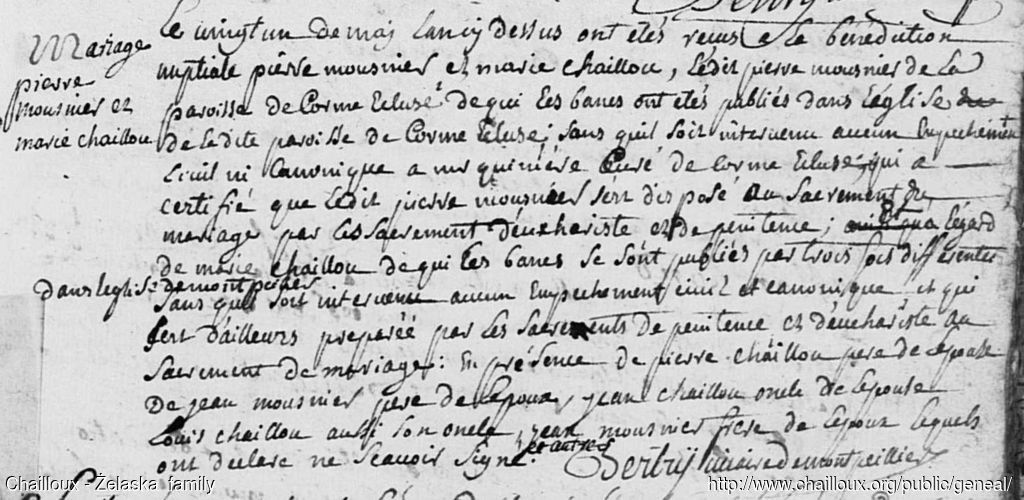 Mariage
pierre
mousnier et
marie chaillou
Le vingt un de may Lan cy dessus ont etés recus a la bénédiction
nuptiale pierre mousnier et marie chaillou, Ledit pierre mousnier de La
paroisse de Corme Ecluse de qui Les bancs ont etés publiés dans Léglise
de Ladite paroisse de Corme Ecluse; sans quil soit intervenu aucun Empechement
Civil ni Canonique a mr quiniére Curé de Corme Ecluse qui a
certifié que Ledit pierre mousnier sert disposé au sacrement de
mariage par Les sacrement déucharistie et de penitence; et a Légard
de marie chaillou de qui Les bancs se sont publiés par trois fois differentes
dans leglise de montpellier
sans quil soit intervenu aucun Empechement civil et canonique et qui
sert dailleurs preparéé par Les sacrements de penitence et déucharistie au
sacrement de mariage: En présence de pierre chaillou pere de Lepouse
De jean mousnier pere de Lepoux, jean chaillou oncle de Lepouse
Louis chaillou aussi son oncle, jean mousnier frere de Lepoux Lesquels
ont declare ne scavoir signé. et autres
Dertrij vicaire de montpeillier
Chailloux - Żelaska family
http://www.chailloux.org/public/geneal/